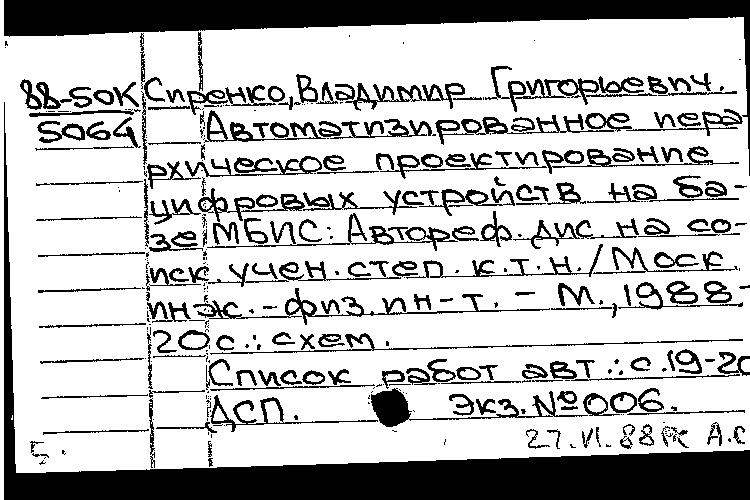 88-50К Сиренко, Владимир Григорьевич.
5064 Автоматизированное иера-
рхическое проектирование
цифровых устройств на ба-
зе МБИС: Автореф. дис. на со-
иск. учен. степ. к.т.н. / Моск.
инж.-физ. ин-т. - М., 1988.-
20с.: схем.
Список работ авт.: с.19-20
ДСП. Экз. №006.
5. 27.VI.88 А.С